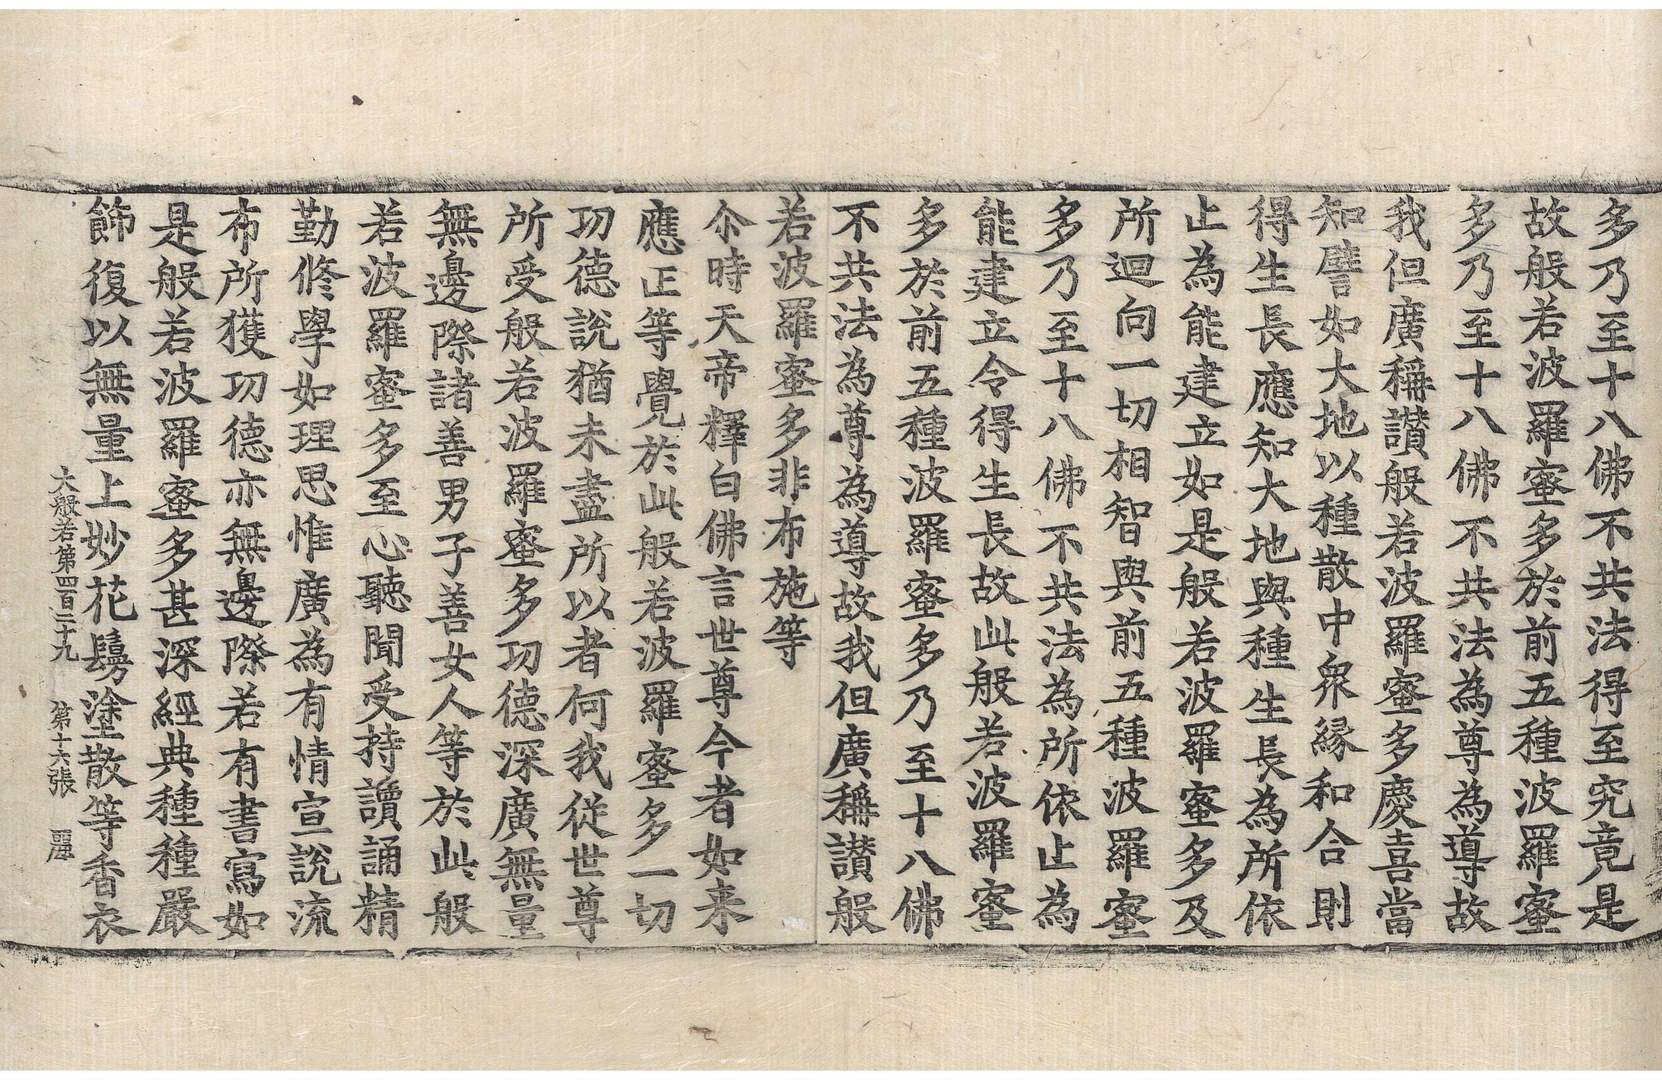 多乃至十八佛不共法得至究竟是
故般若波羅蜜多於前五種波羅蜜
多乃至十八佛不共法為尊為導故
我但廣稱讃般若波羅蜜多慶喜當
知譬如大地以種散中衆緣和合則
得生長應知大地與種生長為所依
止為能建立如是般若波羅蜜多及
所迴向一切相智與前五種波羅蜜
多乃至十八佛不共法為所依止為
能建立令得生長故此般若波羅蜜
多於前五種波羅蜜多乃至十八佛
不共法為尊為導故我但廣稱讃般
若波羅蜜多非布施等
尒時天帝釋白佛言世尊今者如来
應正等覺於此般若波羅蜜多一切
功德說猶未盡所以者何我從世尊
所受般若波羅蜜多功德深廣無量
無邊際諸善男子善女人等於此般
若波羅蜜多至心聽聞受持讀誦精
勤修學如理思惟廣為有情宣說流
布所獲功德亦無邊際若有書寫如
是般若波羅蜜多甚深經典種種嚴
飾復以無量上妙花鬘塗散等香衣
大般若第四百二十九 第十六張 麗